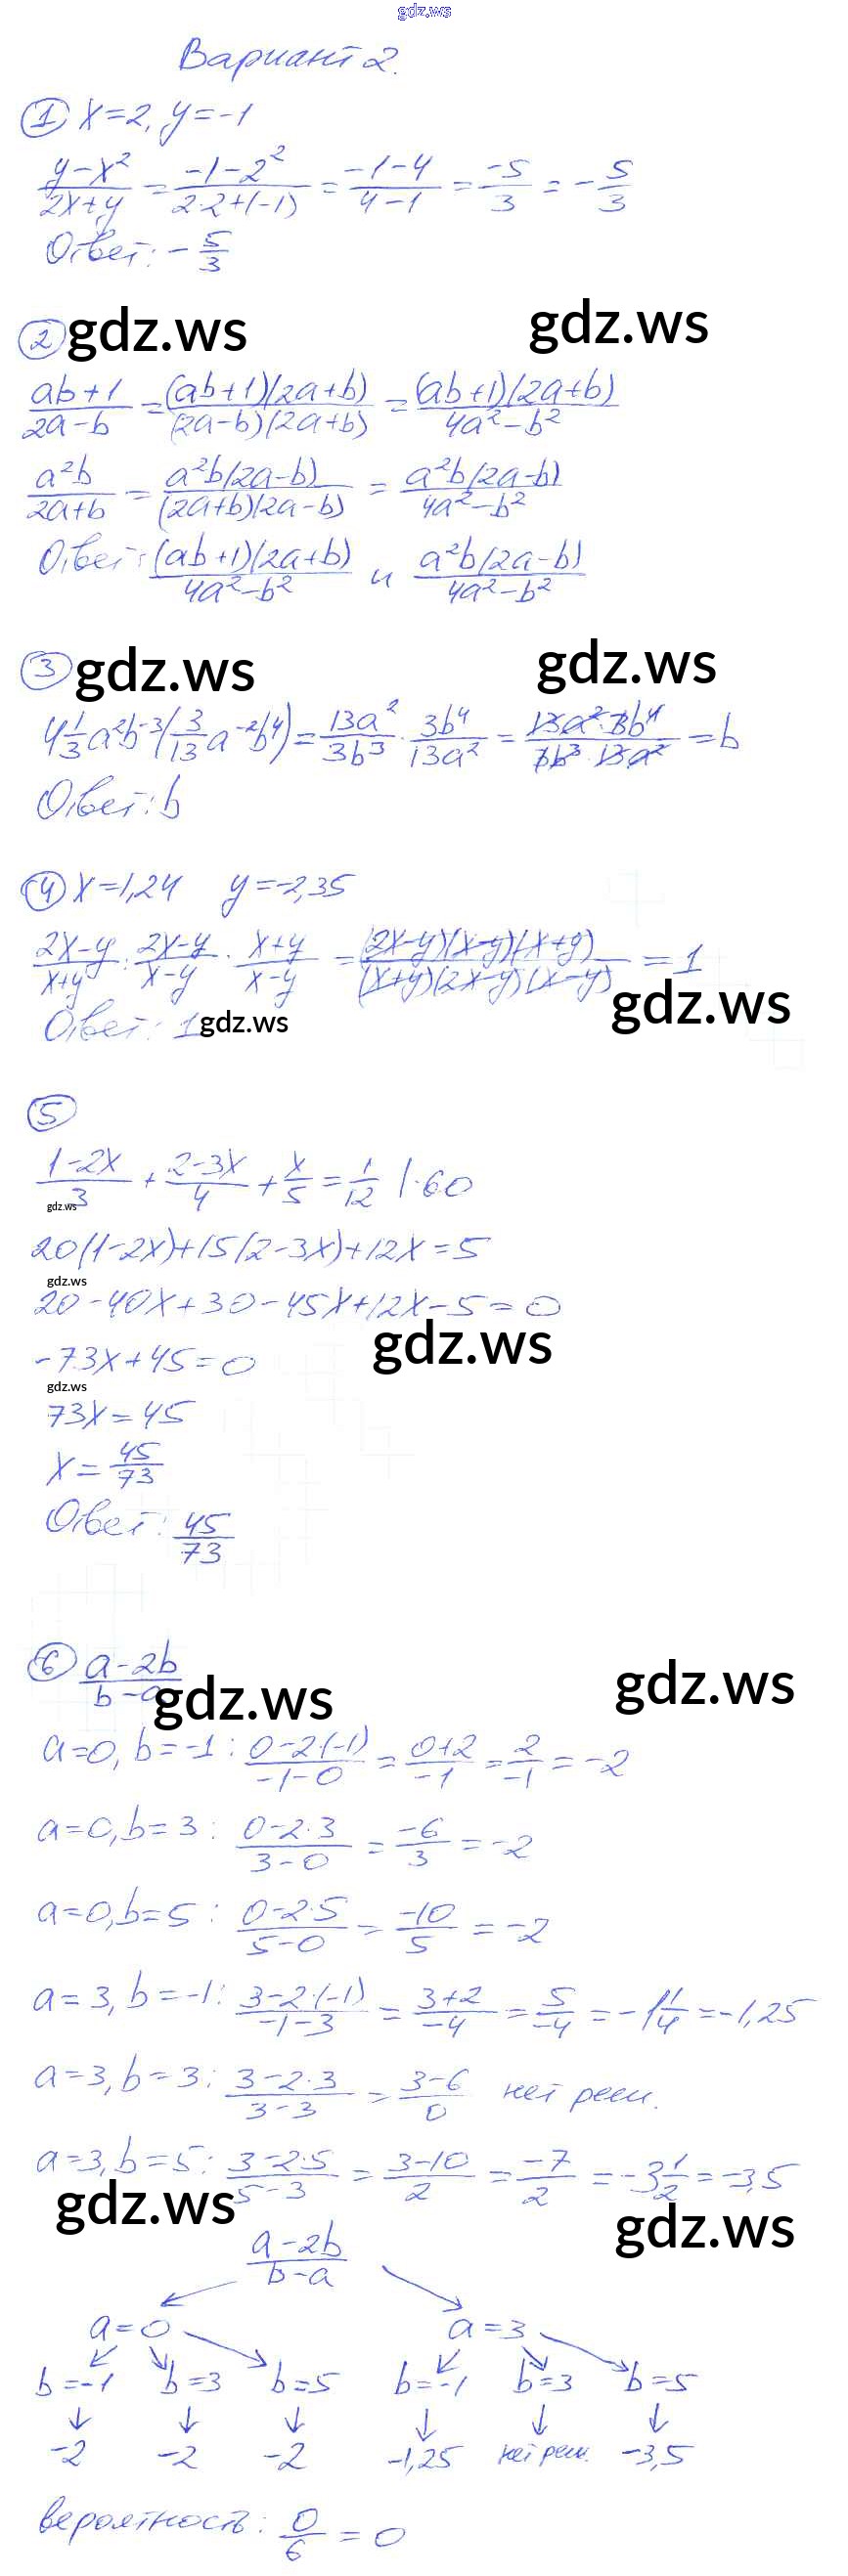 gdz.ws
Вариант 2.
① x=2, y=-1
(y-x²)/(2x+y) = (-1-2²)/(2·2+(-1)) = (-1-4)/(4-1) = -5/3 = -5/3
Ответ: -5/3
② gdz.ws gdz.ws
(ab+1)/(2a-b) = (ab+1)(2a+b)/(2a-b)(2a+b) = (ab+1)(2a+b)/(4a²-b²)
a²b/(2a+b) = a²b(2a-b)/(2a+b)(2a-b) = a²b(2a-b)/(4a²-b²)
Ответ: (ab+1)(2a+b)/(4a²-b²) и a²b(2a-b)/(4a²-b²)
③ gdz.ws gdz.ws
4 1/3 a²b⁻³(3/13 a⁻²b⁴) = 13a²/3b³ · 3b⁴/13a² = 13a²·3b⁴/3b³·13a² = b
Ответ: b
④ x=1,24 y=-2,35
(2x-y)/(x+y) : (2x-y)/(x-y) · (x+y)/(x-y) = (2x-y)(x-y)(x+y)/(x+y)(2x-y)(x-y) = 1
gdz.ws
Ответ: 1 gdz.ws
⑤
(1-2x)/3 + (2-3x)/4 + x/5 = 1/12 |·60
gdz.ws
20(1-2x)+15(2-3x)+12x=5
gdz.ws
20-40x+30-45x+12x-5=0
gdz.ws
-73x+45=0
gdz.ws
73x=45
x=45/73
Ответ: 45/73
⑥ (a-2b)/(b-a) gdz.ws gdz.ws
a=0, b=-1: (0-2·(-1))/(-1-0) = (0+2)/-1 = 2/-1 = -2
a=0, b=3: (0-2·3)/(3-0) = -6/3 = -2
a=0, b=5: (0-2·5)/(5-0) = -10/5 = -2
a=3, b=-1: (3-2·(-1))/(-1-3) = (3+2)/-4 = 5/-4 = -1 1/4 = -1,25
a=3, b=3: (3-2·3)/(3-3) = (3-6)/0 нет реш.
a=3, b=5: (3-2·5)/(5-3) = (3-10)/2 = -7/2 = -3 1/2 = -3,5
gdz.ws gdz.ws
(a-2b)/(b-a)
a=0 a=3
b=-1 b=3 b=5 b=-1 b=3 b=5
-2 -2 -2 -1,25 нет реш. -3,5
вероятность: 0/6 = 0